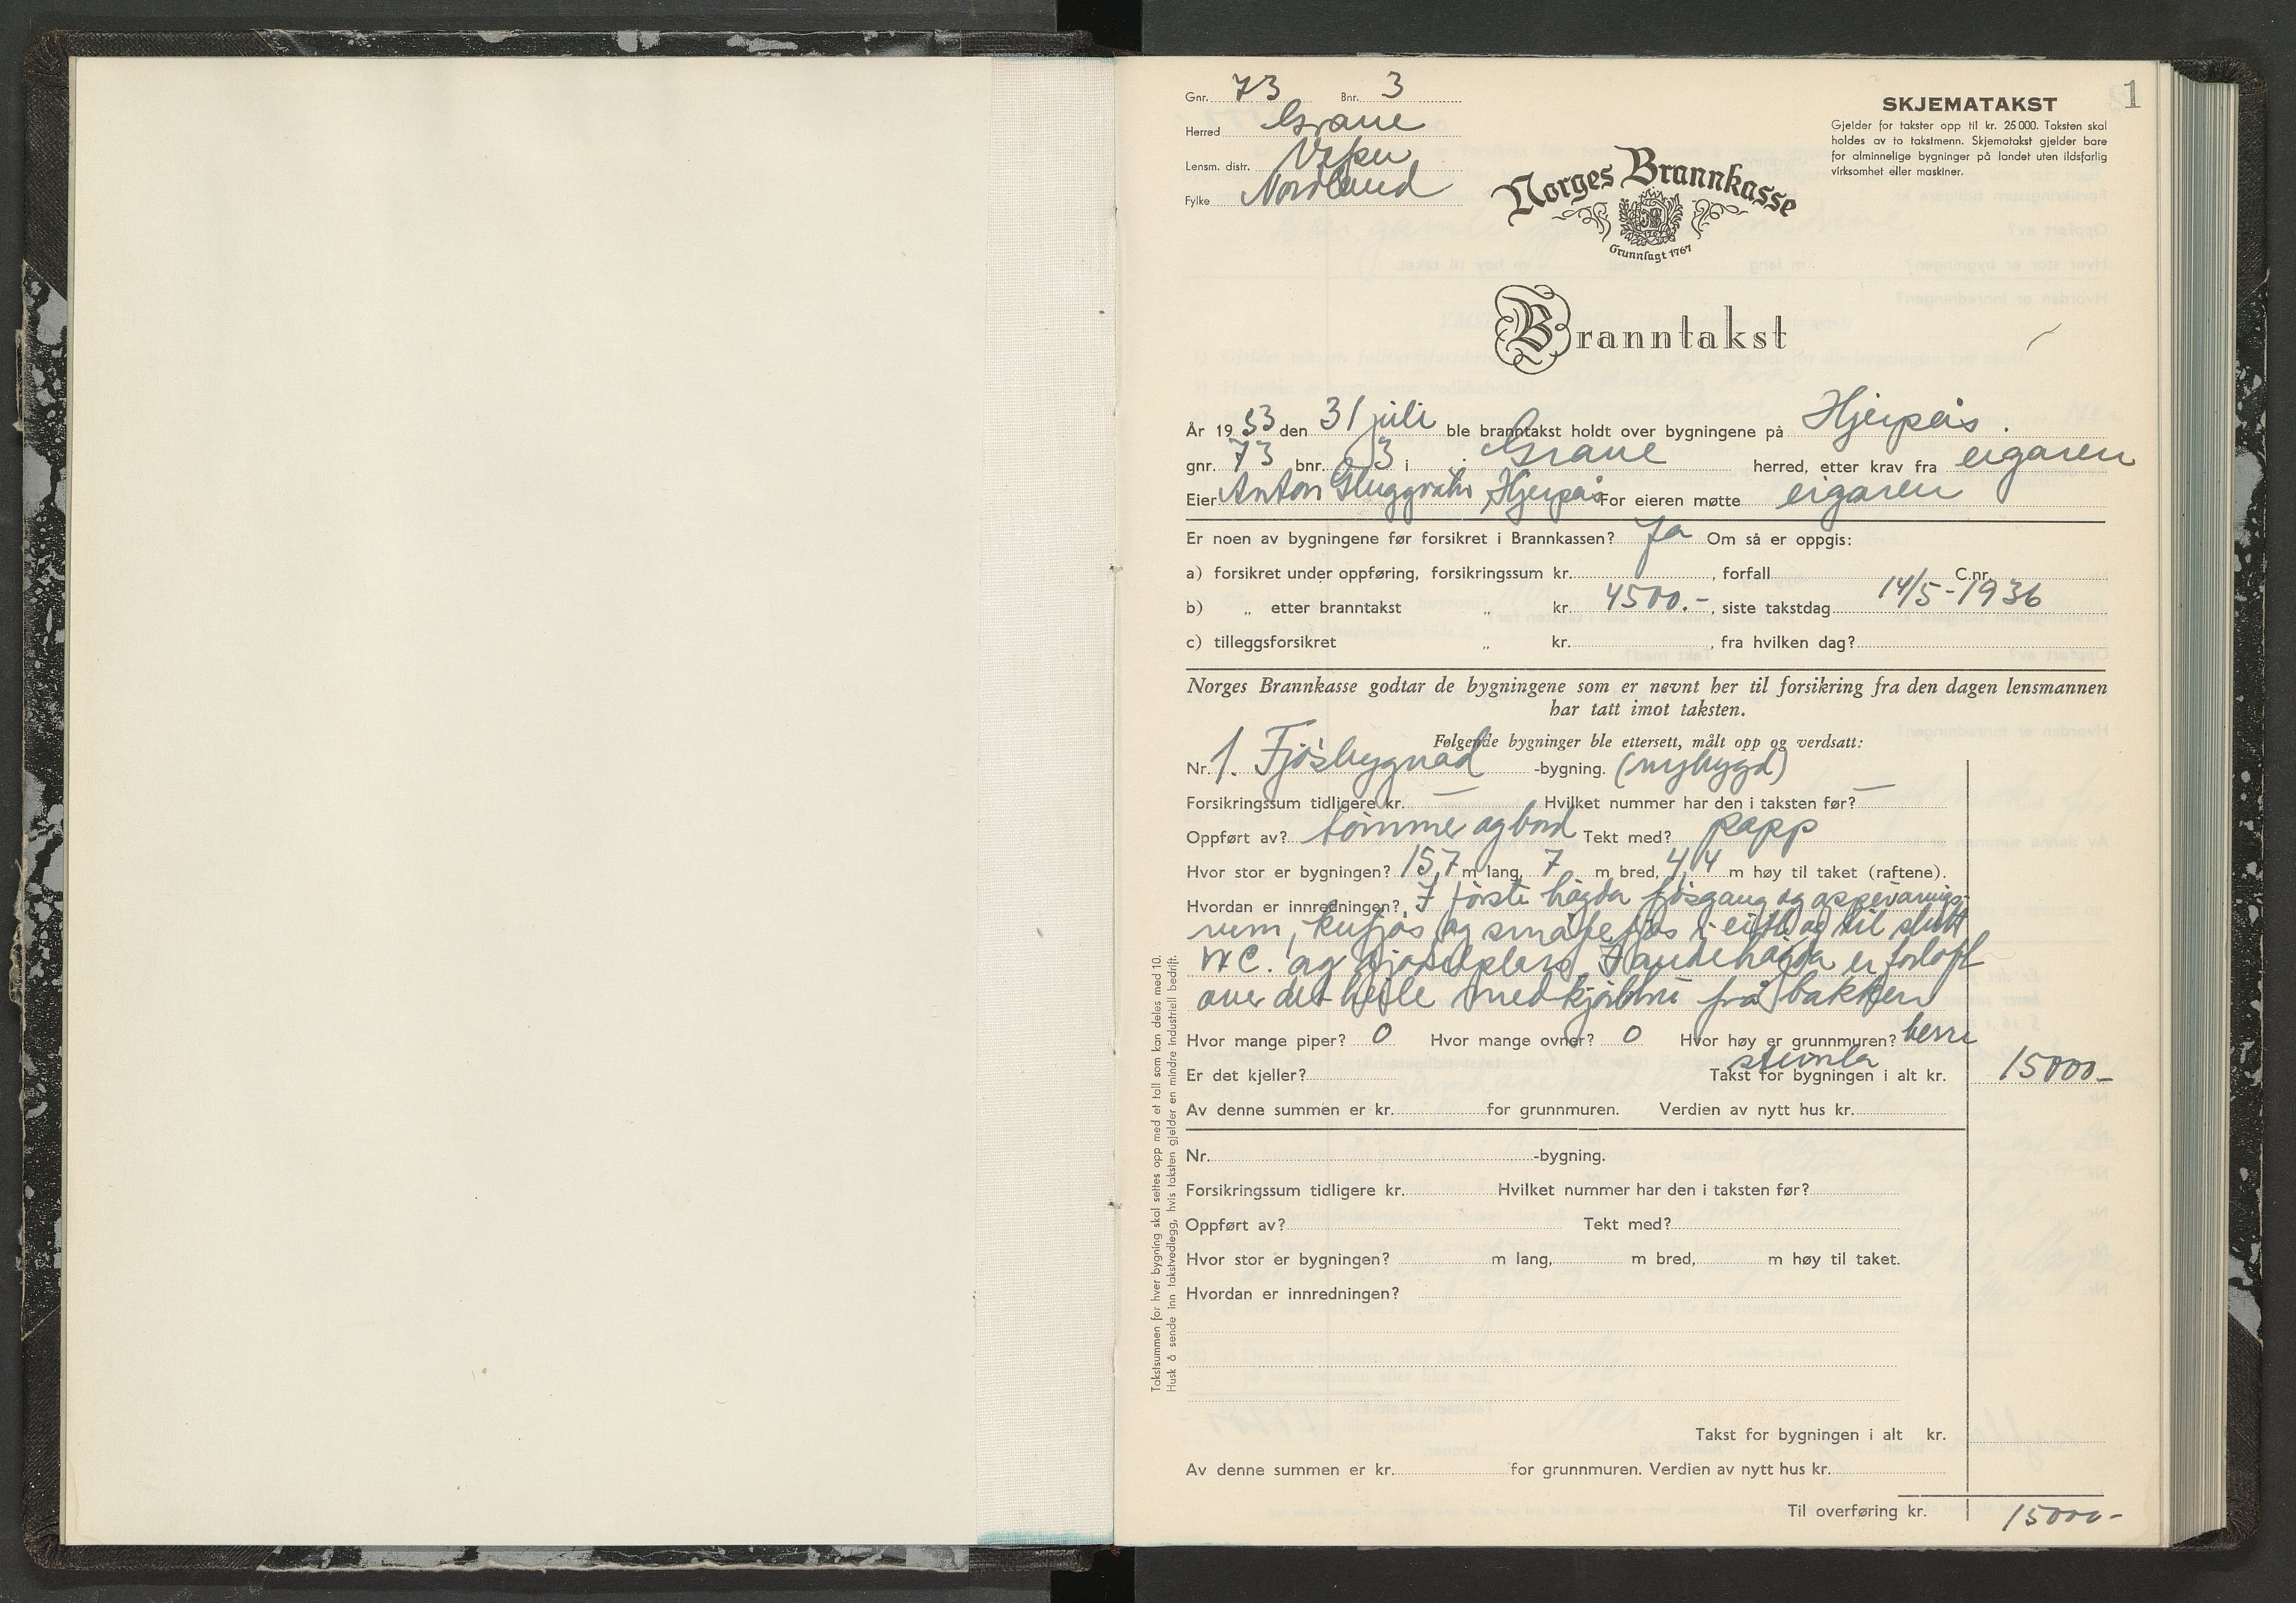 1
Gnr. 73 Bnr. 3
Herred Grane
Lensm. distr. Vefsn
Fylke Nordland
SKJEMATAKST
Gjelder for takster opp til kr. 25 000. Taksten skal
holdes av to takstmenn. Skjematakst gjelder bare
for alminnelige bygninger på landet uten ildsfarlig
virksomhet eller maskiner.
Norges Brannkasse
Grunnlagt 1767
Branntakst
År 1953 den 31 juli ble branntakst holdt over bygningene på Hjerpås.
gnr. 73 bnr. 3 i Grane herred, etter krav fra eigaren
Eier Anton Gluggvatn Hjerpås For eieren møtte eigaren
Er noen av bygningene før forsikret i Brannkassen? Ja Om så er oppgis:
a) forsikret under oppføring, forsikringssum kr. , forfall C.nr.
b) „ etter branntakst „ kr. 4500.-, siste takstdag 14/5-1936
c) tilleggsforsikret „ kr. , fra hvilken dag?
Norges Brannkasse godtar de bygningene som er nevnt her til forsikring fra den dagen lensmannen
har tatt imot taksten.
Følgende bygninger ble ettersett, målt opp og verdsatt:
Nr. 1. Fjøsbygnad -bygning. (nybygd)
Forsikringssum tidligere kr. — Hvilket nummer har den i taksten før? —
Oppført av? tømmer og bord Tekt med? papp
Hvor stor er bygningen? 15,7 m lang, 7 m bred, 4,4 m høy til taket (raftene).
Hvordan er innredningen? I første høgda fjøsgang og oppevarings-
rum, kufjøs og småfefjøs i eitt og til slutt
W.C. og gjødselplass. I andre høgda er forloft
over det heile med kjørbru frå bakken
Hvor mange piper? 0 Hvor mange ovner? 0 Hvor høy er grunnmuren? berre
steinla
Er det kjeller? Takst for bygningen i alt kr. 15000-
Av denne summen er kr. for grunnmuren. Verdien av nytt hus kr.
Nr. -bygning.
Forsikringssum tidligere kr. Hvilket nummer har den i taksten før?
Oppført av? Tekt med?
Hvor stor er bygningen? m lang, m bred, m høy til taket.
Hvordan er innredningen?
Takst for bygningen i alt kr.
Av denne summen er kr. for grunnmuren. Verdien av nytt hus kr.
Til overføring kr. 15000-
Takstsummen for hver bygning skal settes opp med et tall som kan deles med 10.
Husk å sende inn takstvedlegg, hvis taksten gjelder en mindre industriell bedrift.